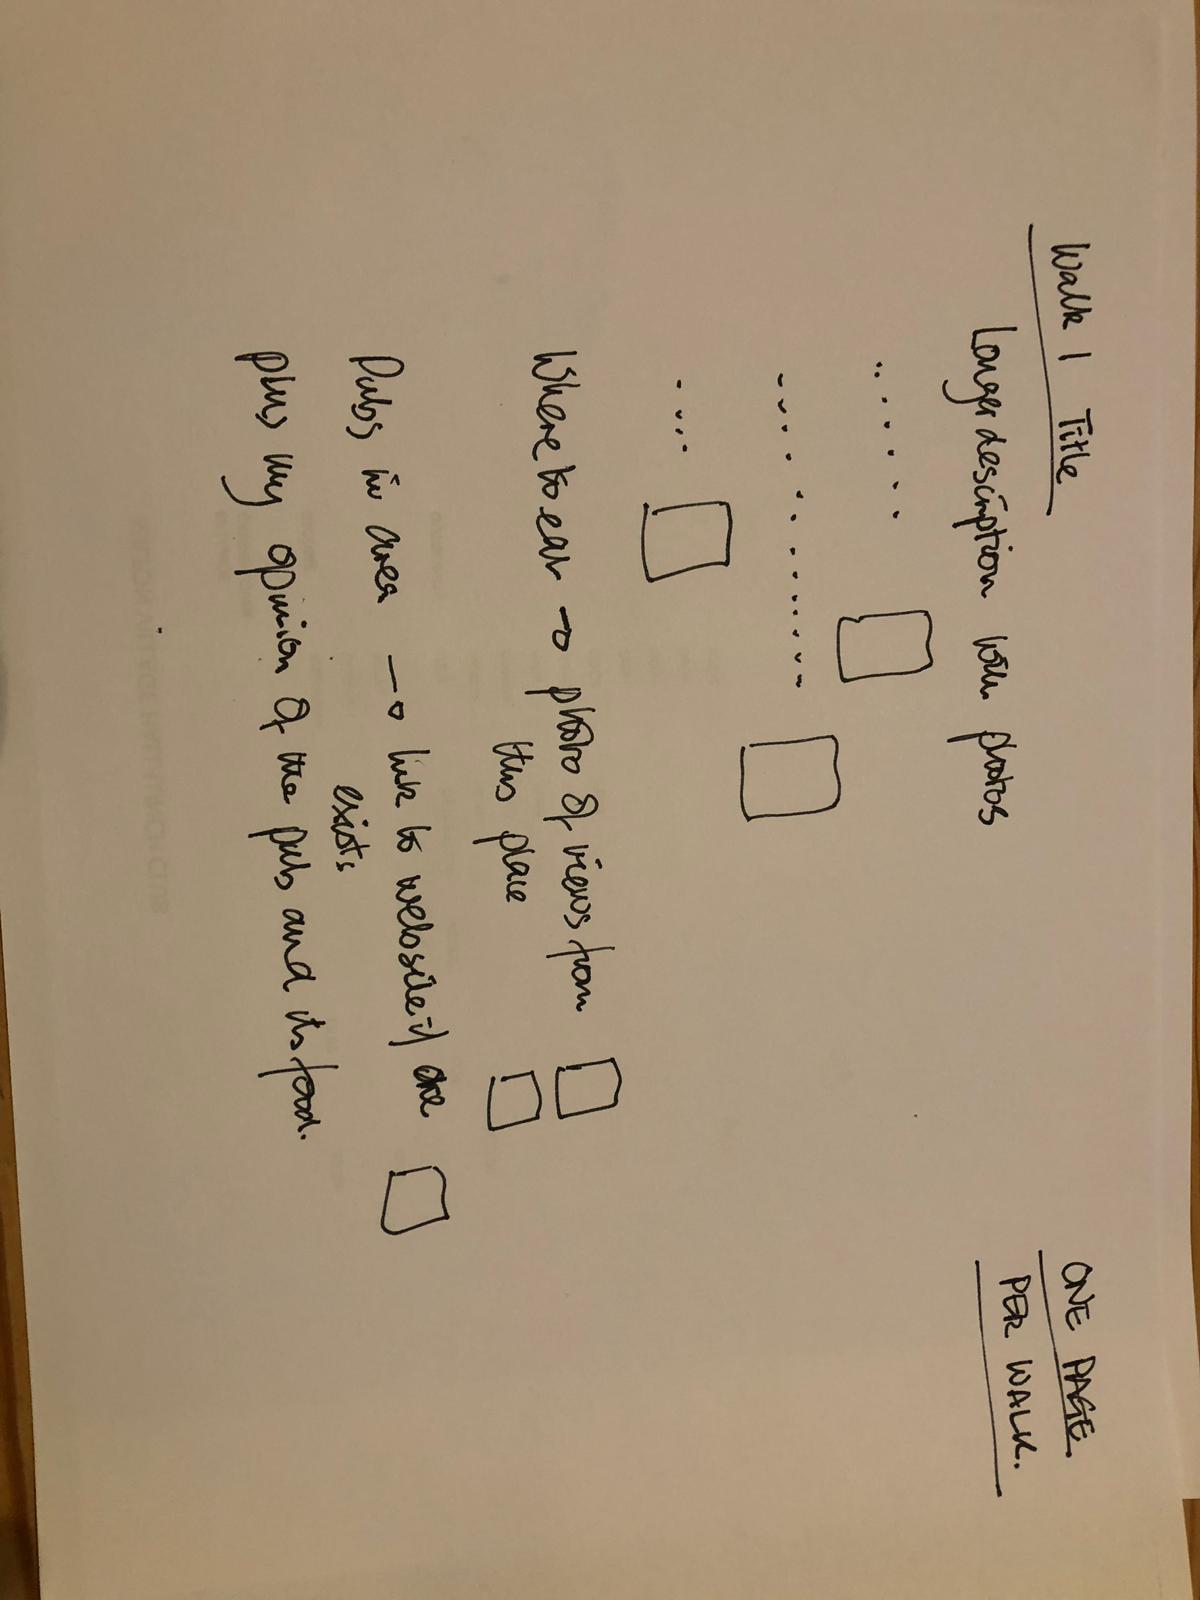 Walk 1 Title
ONE PAGE
PER WALK.
Longer description with photos
Where to eat → photo of views from
this place
Pubs in area → link to website if one
exists
plus my opinion of the pub and its food.